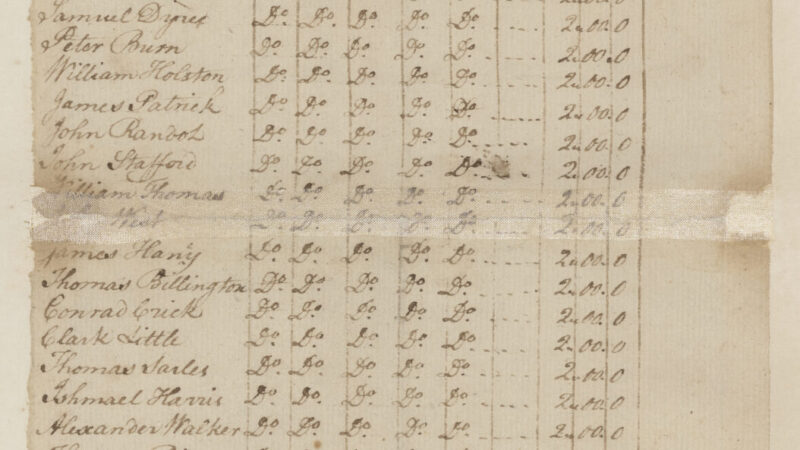 Samuel Dyres Do. Do. Do. Do. Do. 2,,00,,0
Peter Burn Do. Do. Do. Do. Do. 2,,00,,0
William Holston Do. Do. Do. Do. Do. 2,,00,,0
James Patrick Do. Do. Do. Do. Do. 2,,00,,0
John Randol Do. Do. Do. Do. Do. 2,,00,,0
John Stafford Do. Do. Do. Do. Do. 2,,00,,0
William Thomas Do. Do. Do. Do. Do. 2,,00,,0
West Do. Do. Do. Do. Do. 2,,00,,0
James Hany Do. Do. Do. Do. Do. 2,,00,,0
Thomas Billington Do. Do. Do. Do. Do. 2,,00,,0
Conrad Crick Do. Do. Do. Do. Do. 2,,00,,0
Clark Little Do. Do. Do. Do. Do. 2,,00,,0
Thomas Sarles Do. Do. Do. Do. Do. 2,,00,,0
Ishmael Harris Do. Do. Do. Do. Do. 2,,00,,0
Alexander Walker Do. Do. Do. Do. Do. 2,,00,,0